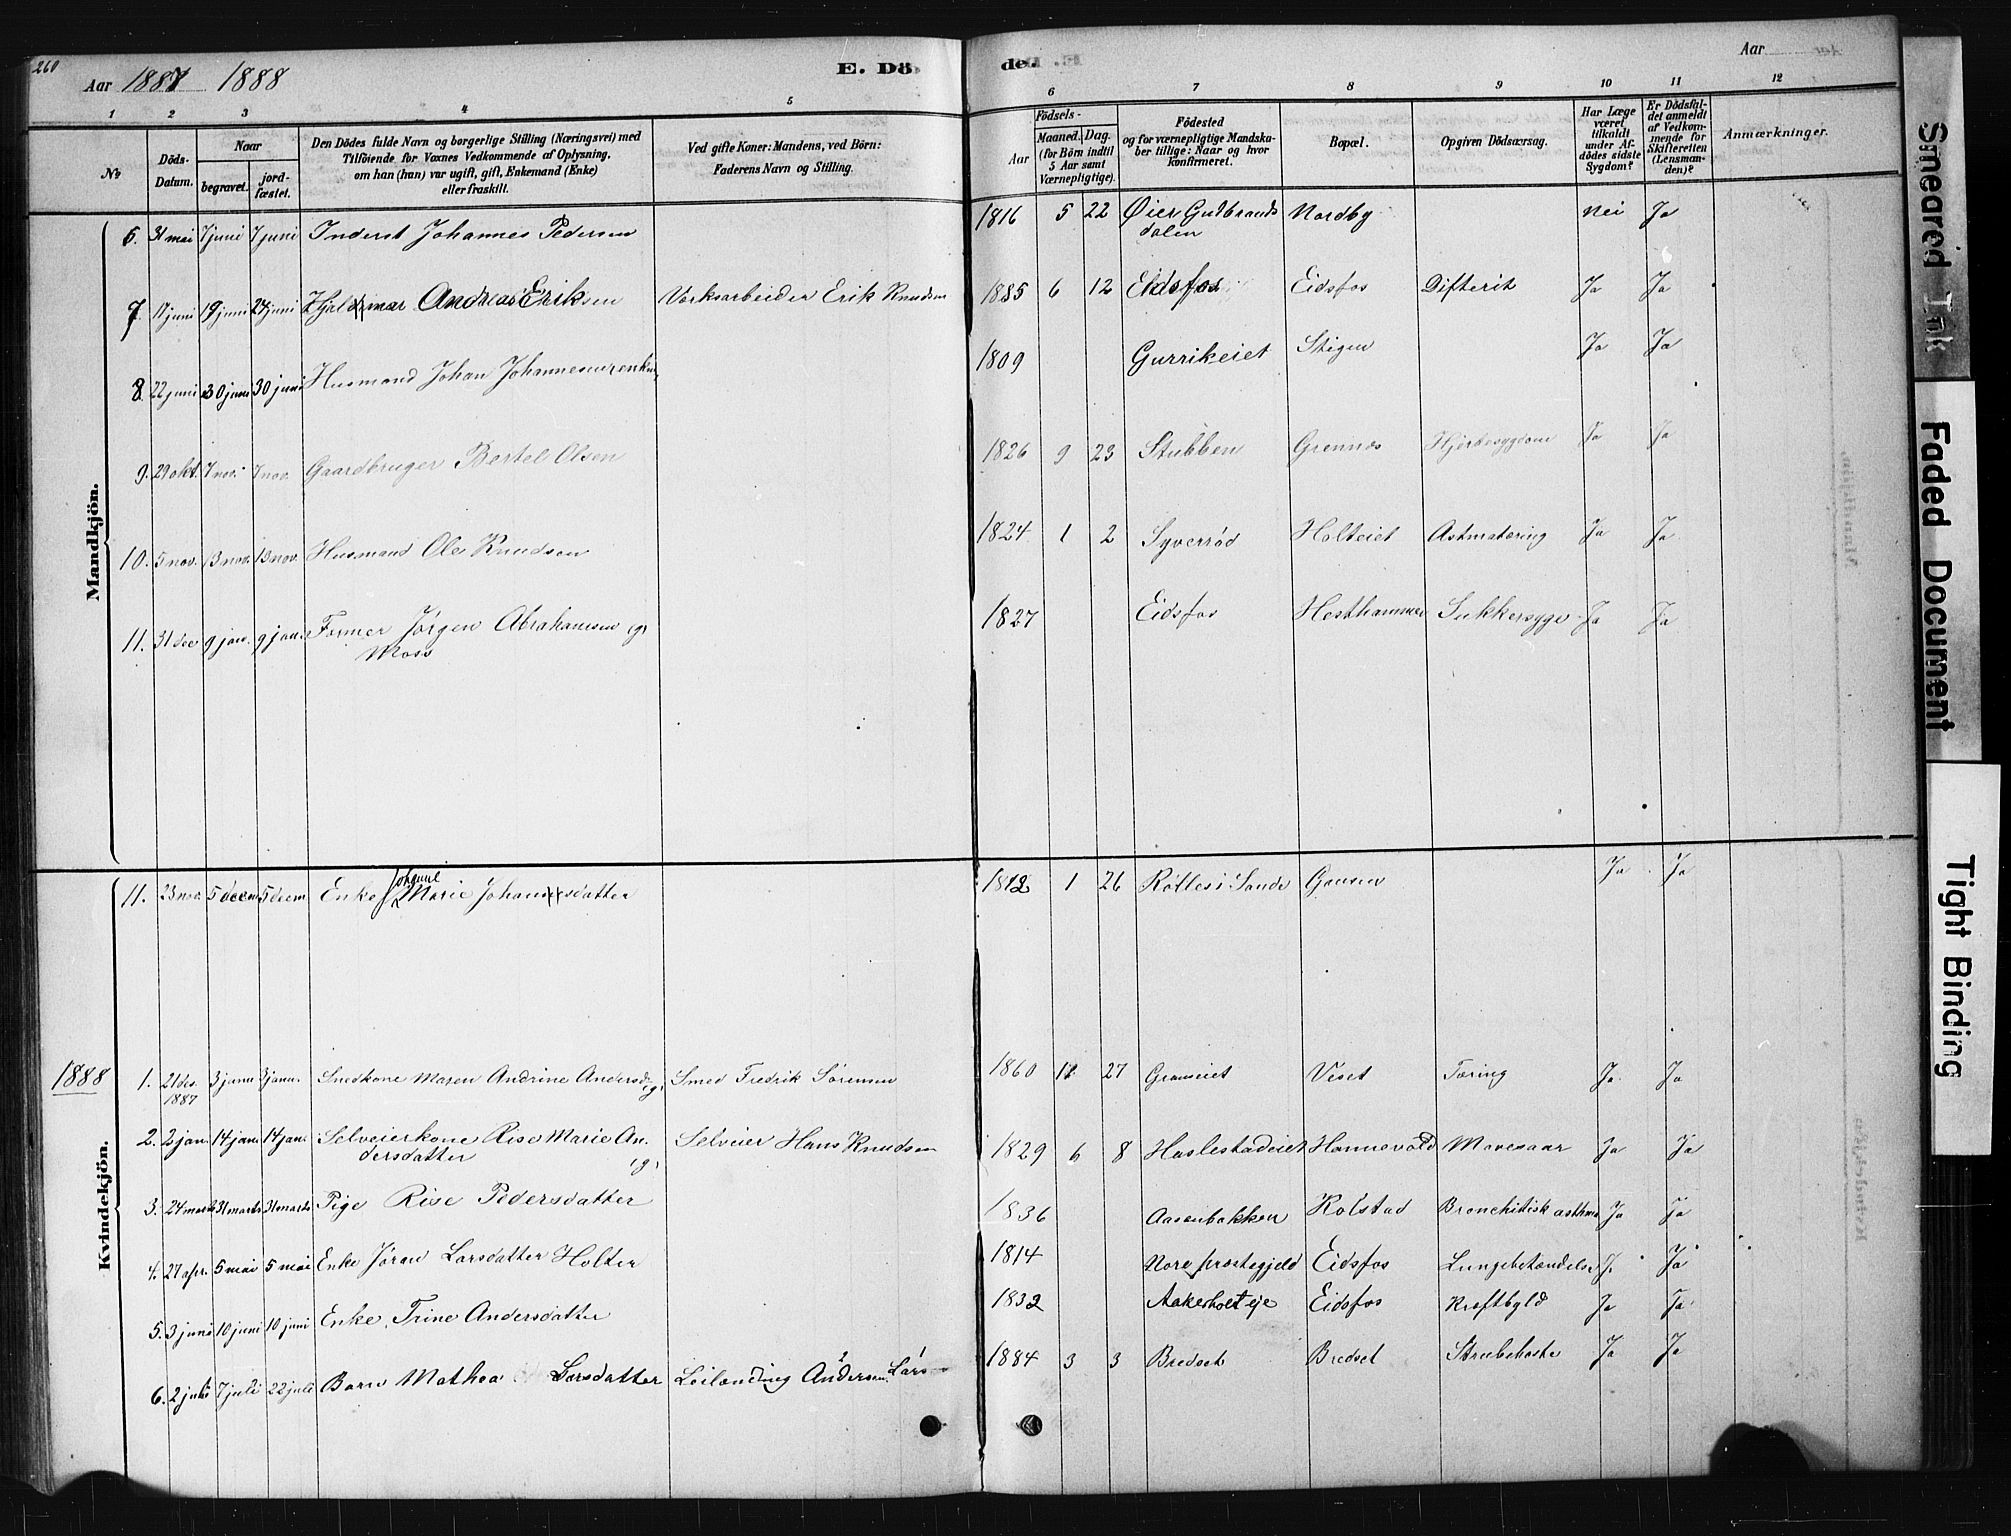 260
Aar 1887 1888
E. Dö-
de.
Aar
1
2
3
4
5
6
7
8
9
10
11
12
No
Döds-
Datum.
Naar
begravet.
jord-
fæstet.
Den Dödes fulde Navn og borgerlige Stilling (Næringsvei) med
Tilföiende for Voxnes Vedkommende af Oplysning,
om han (hun) var ugift, gift, Enkemand (Enke)
eller fraskilt.
Ved gifte Koner: Mandens, ved Börn:
Faderens Navn og Stilling.
Födsels-
Aar
Maaned.
Dag.
(for Börn indtil
5 Aar samt
Værnepligtige).
Födested
og for værnepligtige Mandska-
ber tillige: Naar og hvor
konfirmeret.
Bopæl.
Opgiven Dödsaarsag.
Har Læge
været
tilkaldt
under Af-
dödes sidste
Sygdom?
Er Dödsfal-
det anmeldt
af Vedkom-
mende for
Skifteretten
(Lensman-
den)?
Anmærkninger.
Mandkjön.
6. 31 mai 7 juni 7 juni Inderst Johannes Pedersen 1816 5 22 Øier Gudbrands Nordby Nei Ja
dalen
7. 11 juni 19 juni 24 juni Hjalmar Andreas Eriksen Verksarbeider Erik Knudsen 1885 6 12 Eidsfos Eidsfos Difterit Ja Ja
8. 22 juni 30 juni 30 juni Husmand Johan 1809 Gurrikeiet Stigen Ja Ja
9. 29 okt. 7 nov. 7 nov. Gaardbruger Bertel Olsen 1826 9 23 Stubben Grennes Hjertesygdom Ja Ja
10. 5 nov. 13 nov. 13 nov. Husmand Ole Knudsen 1824 1 2 Syverrød Holteiet Astmatæring Ja Ja
11. 31 dec 9 jan. 9 jan. Former Jörgen Abrahamsen (g) 1827 Eidsfos Hesthammer Sukkersyge Ja Ja
Moss
Kvindekjön.
Johanne
11. 23 nov. 5 decem 5 decem Enke Marie Johansdatter 1812 1 26 Røttes i Sande Gausen Ja Ja
1888
1. 21 des. 3 janu 3 janu. Smedkone Maren Andrine Andersd. (g) Smed Fredrik Sørensen 1860 11 27 Granseiet Veset Tæring Ja Ja
1887
2. 2 jan. 14 jan. 14 jan. Selveierkone Rise Marie An- Selveier Hans Knudsen 1829 6 8 Haslestadeiet Hannevold Mavesaar Ja Ja
dersdatter (g)
3. 24 marts 31 marts 31 marts Pige Rise Pedersdatter 1836 Aasenbakken Kolstad Bronchitisk asthma Ja Ja
4. 27 apr. 5 mai 5 mai Enke Jøran Larsdatter Holter 1814 Nore præstegjeld Eidsfos Lungebetændelse J. Ja
5. 3 juni 10 juni 10 juni Enke Trine Andersdatter 1832 Aakerholt eje Eidsfos Kræftbyld Ja Ja
6. 2 juli 7 juli 22 juli Barn Mathea Larsdatter Leilænding Andersen Lars 1884 3 3 Bredset Bredset Strubehoste Ja Ja
Smeared Ink
Faded Document
Tight Binding